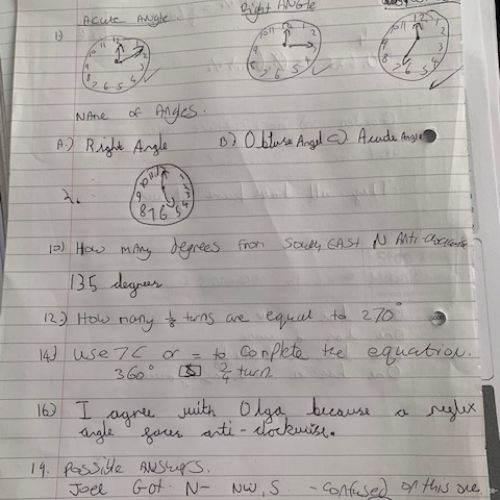 Acute Angle Right ANGle
1)
NAme of Angles.
A.) Right Angle B) Obtuse Angel C) Acude Angle
2.
10) How mAny degrees from South EAST N Anti-clockwise
135 degrees
12.) How many 1/8 turns are equal to 270°
14) use > < or = to complete the equation.
360° 2/4 turn
16) I agree with Olga because a reglex
angle goes anti-clockwise.
19. Possible Answers.
Joel Got. N- NW, S - confused on this one